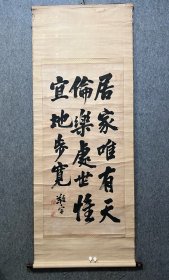 居家唯有天
倫樂處世惟
宜地步寬